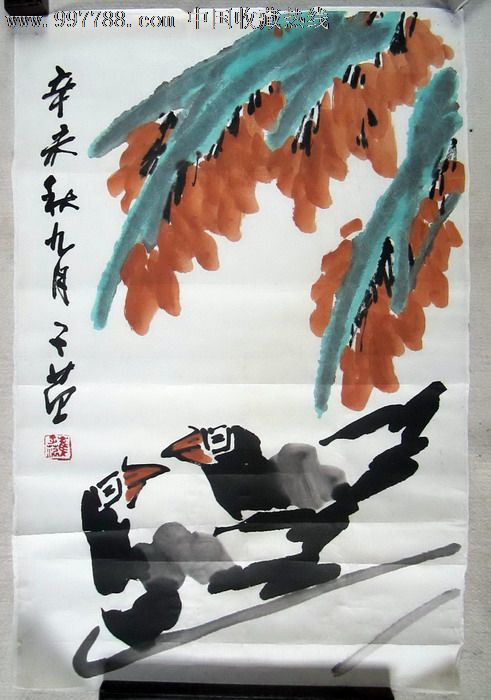 www.997788.com 中国收藏热线
辛未秋九月